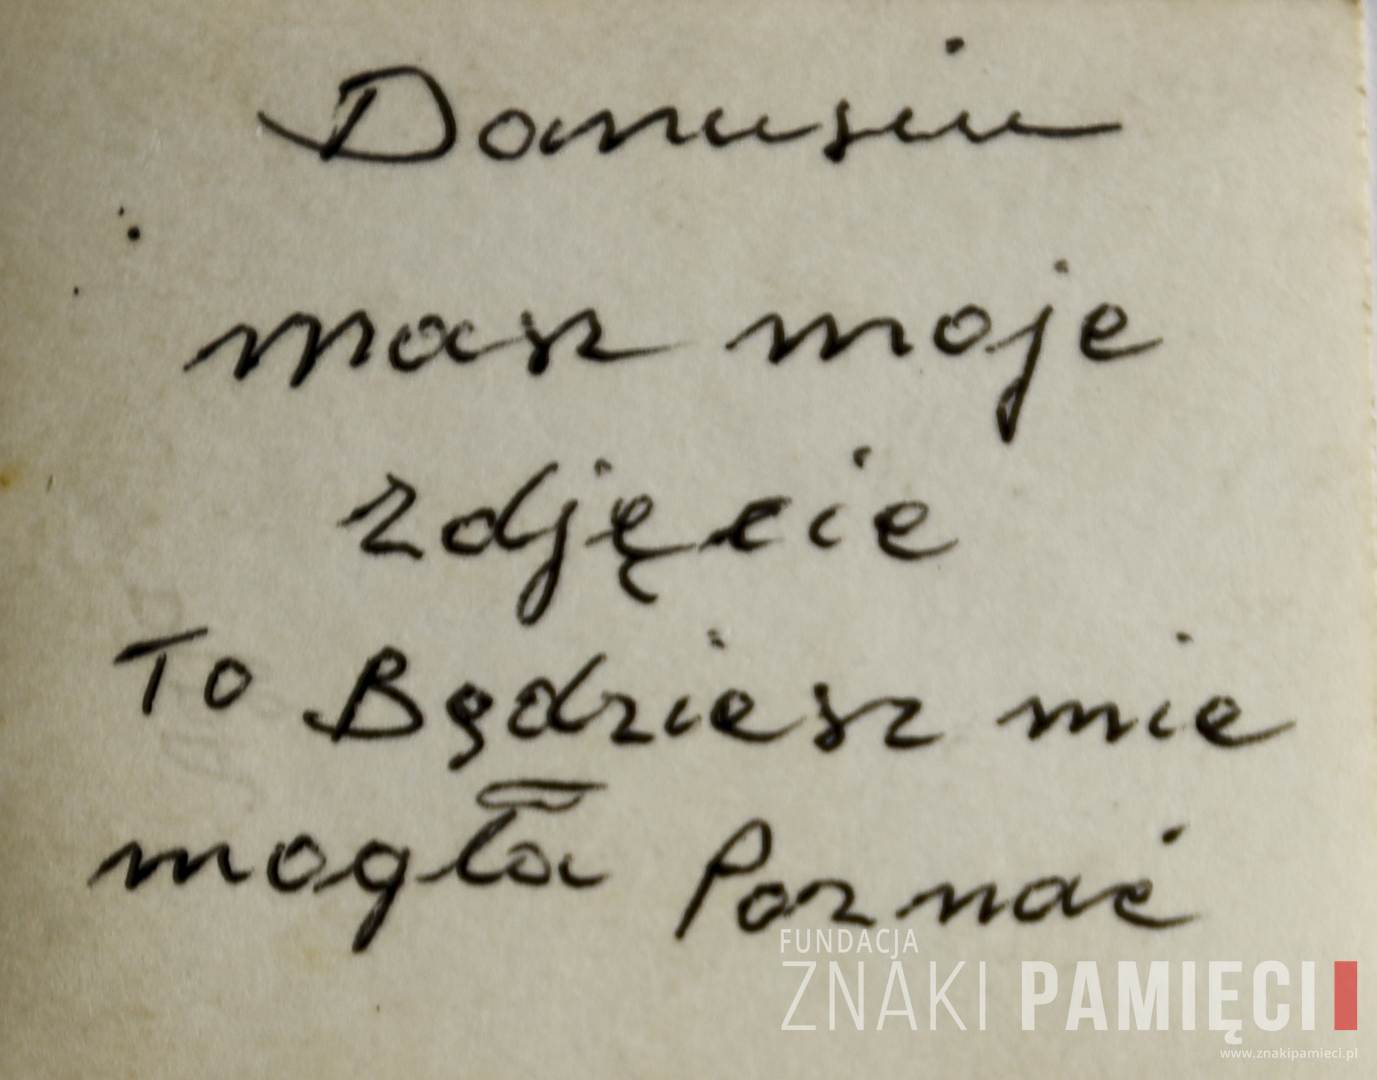 Danusiu
masz moje
zdjęcie
To Będziesz mie
mogła Poznać
FUNDACJA
ZNAKI PAMIĘCI
www.znakipamieci.pl